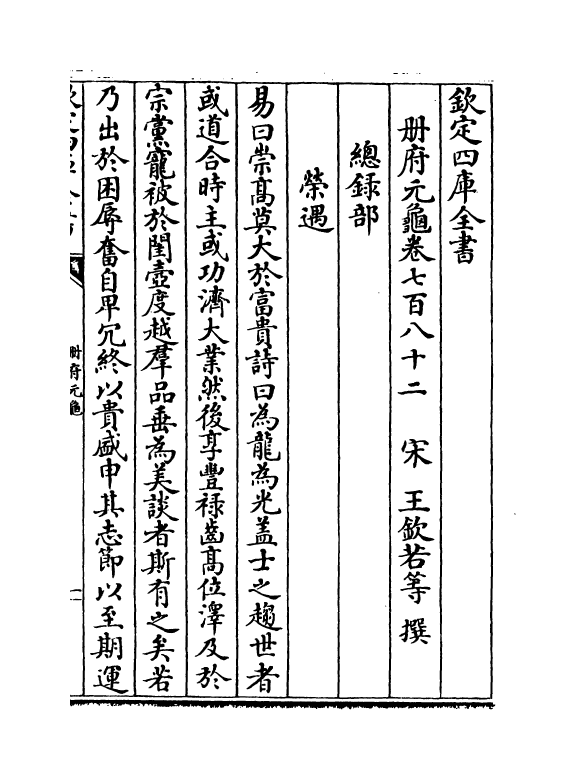 欽定四庫全書
冊府元龜卷七百八十二　宋　王欽若等　撰
總録部
榮遇
易曰崇髙莫大於富貴詩曰為龍為光盖士之趨世者
或道合時主或功濟大業然後享豐禄齒髙位澤及於
宗黨寵被於閨壼度越羣品垂為美談者斯有之矣若
乃出於困辱奮自卑冗終以貴盛申其志節以至期運
冊府元龜
一